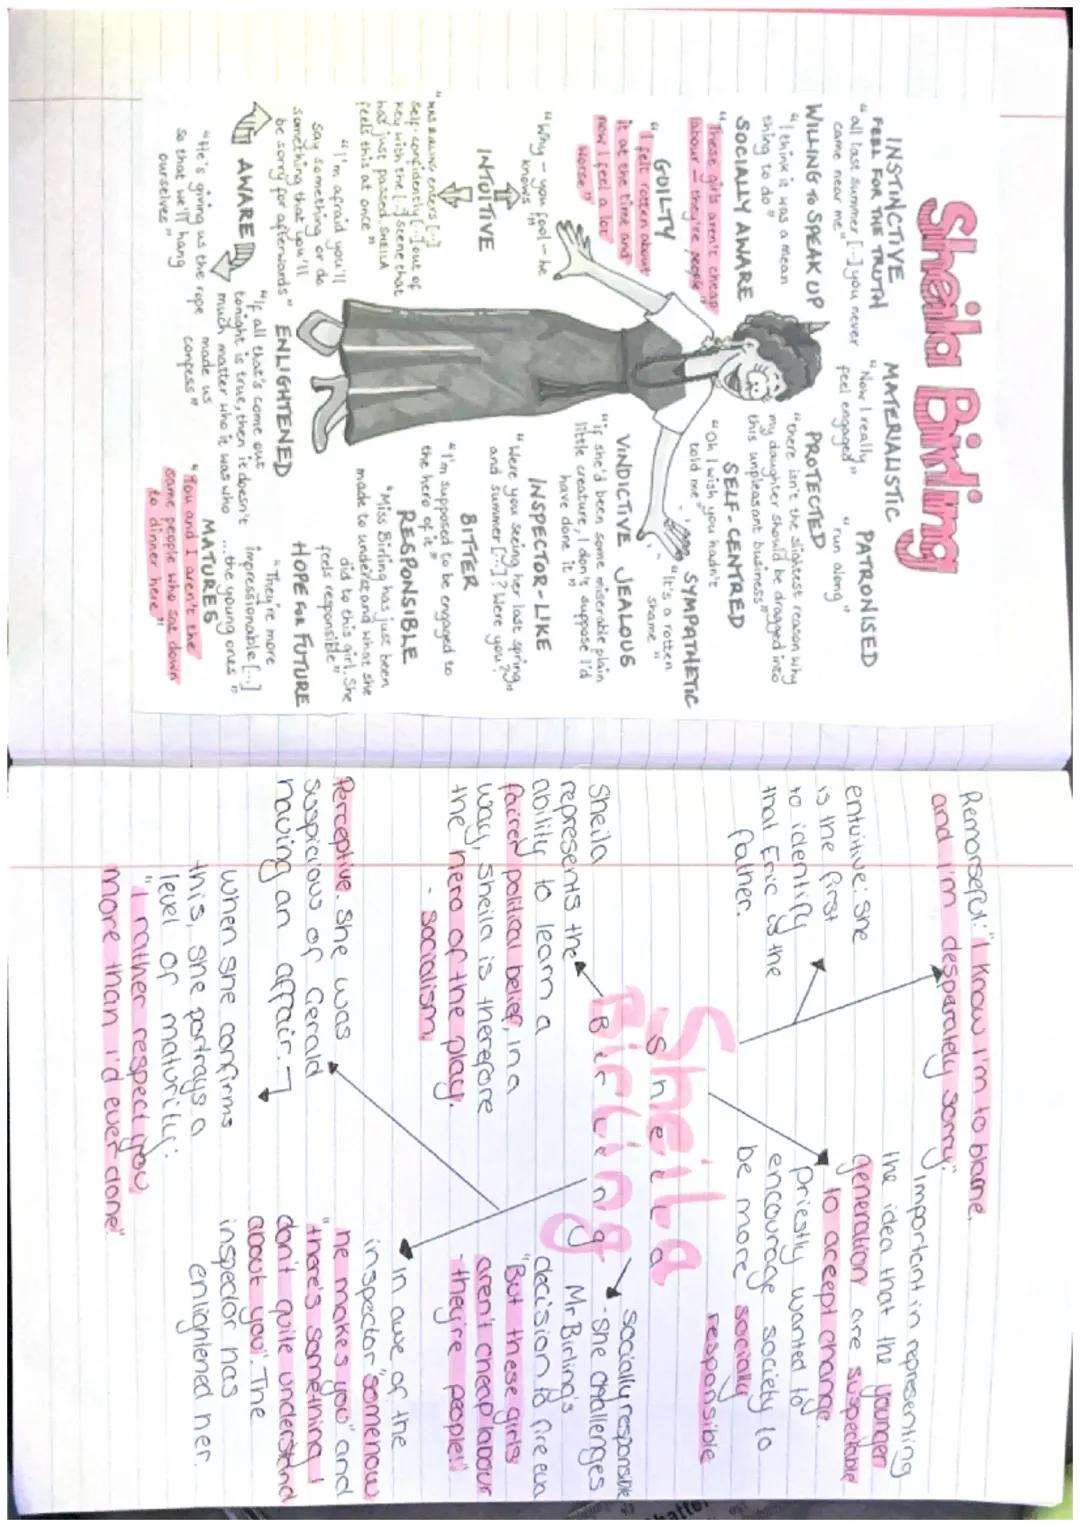 Sheila Birling
INSTINCTIVE
FEEL FOR THE TRUTH
"all last summer [...] you never
came near me"
MATERIALISTIC
"Now I really
feel engaged"
PATRONISED
"run along"
WILLING TO SPEAK UP
"I think it was a mean
thing to do"
PROTECTED
"there isn't the slightest reason why
my daughter should be dragged into
this unpleasant business"
SOCIALLY AWARE
"These girls aren't cheap
labour - they're people"
SELF-CENTRED
"Oh I wish you hadn't
told me"
SYMPATHETIC
"It's a rotten
shame"
GUILTY
"I felt rotten about
it at the time and
now I feel a lot
worse"
VINDICTIVE JEALOUS
"if she'd been some miserable plain
little creature, I don't suppose I'd
have done it"
"Why - you fool - he
knows"
INSPECTOR-LIKE
"Were you seeing her last spring
and summer [...]? Were you?"
INTUITIVE
BITTER
"I'm supposed to be engaged to
the hero of it"
enters [...]
self-confidently [...] out of
key with the [...] scene that
has just passed. SHEILA
feels this at once"
RESPONSIBLE
"Miss Birling has just been
made to understand what she
did to this girl. She
feels responsible"
"I'm afraid you'll
say something or do
something that you'll
be sorry for afterwards"
ENLIGHTENED
"If all that's come out
tonight is true, then it doesn't
much matter who it was who
made us
confess"
HOPE FOR FUTURE
"They're more
impressionable [...]
...the young ones"
AWARE
"He's giving us the rope
so that we'll hang
ourselves"
MATURES
"You and I aren't the
same people who sat down
to dinner here"
Remorseful: "I know I'm to blame.
and I'm desperately sorry".
entuitive: she
is the first
to identify
that Eric is the
father.
Important in representing
the idea that the younger
generation are suspectable
to accept change.
Priestly wanted to
encourage society to
be more socially
responsible
Sheila
Birling
Sheila
represents the
ability to learn a
fairely political belief, in a
way, Sheila is therefore
the hero of the play.
- socialism.
socially responsible
- she challenges
Mr Birling's
decision to fire eva
"But these girls
aren't cheap labour
- they're people!"
Perceptive. she was
suspicious of Gerald
having an affair.
when she confirms
this, she portrays a
level of maturity:
"I rather respect you
more than I'd ever done"
In awe of the
inspector "somehow
he makes you" and
"there's something I
don't quite understand
about you". The
inspector has
enlightened her.